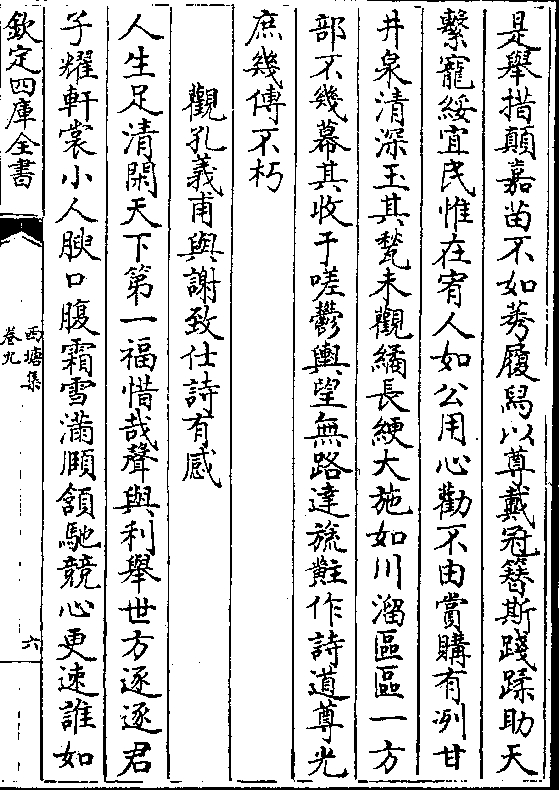 是舉措顛嘉苗不如莠履舄以尊戴冠簪斯踐蹂助天
繫寵綏宜民惟在宥人如公用心勸不由賞購有冽甘
井泉清深玉其甃未觀繘長綆大施如川溜區區一方
部不幾幕其收于嗟鬱輿望無路達旒黈作詩道尊光
庶幾傳不朽
觀孔義甫與謝致仕詩有感
人生足清閑天下第一福惜哉聲與利舉世方逐逐君
子耀軒裳小人腴口腹霜雪滿頤頷馳競心更速誰如
欽定四庫全書
西塘集
卷九
六